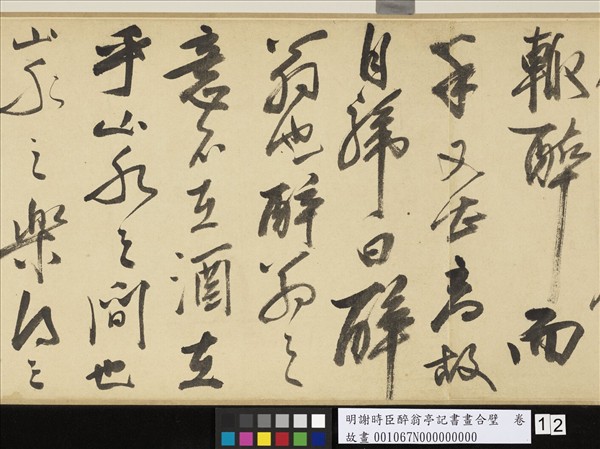 輒醉而
年又最高故
自號曰醉
翁也醉翁之
意不在酒在
乎山水之間也
山水之樂得之
明謝時臣醉翁亭記書畫合璧　卷
故畫 001067N000000000
12